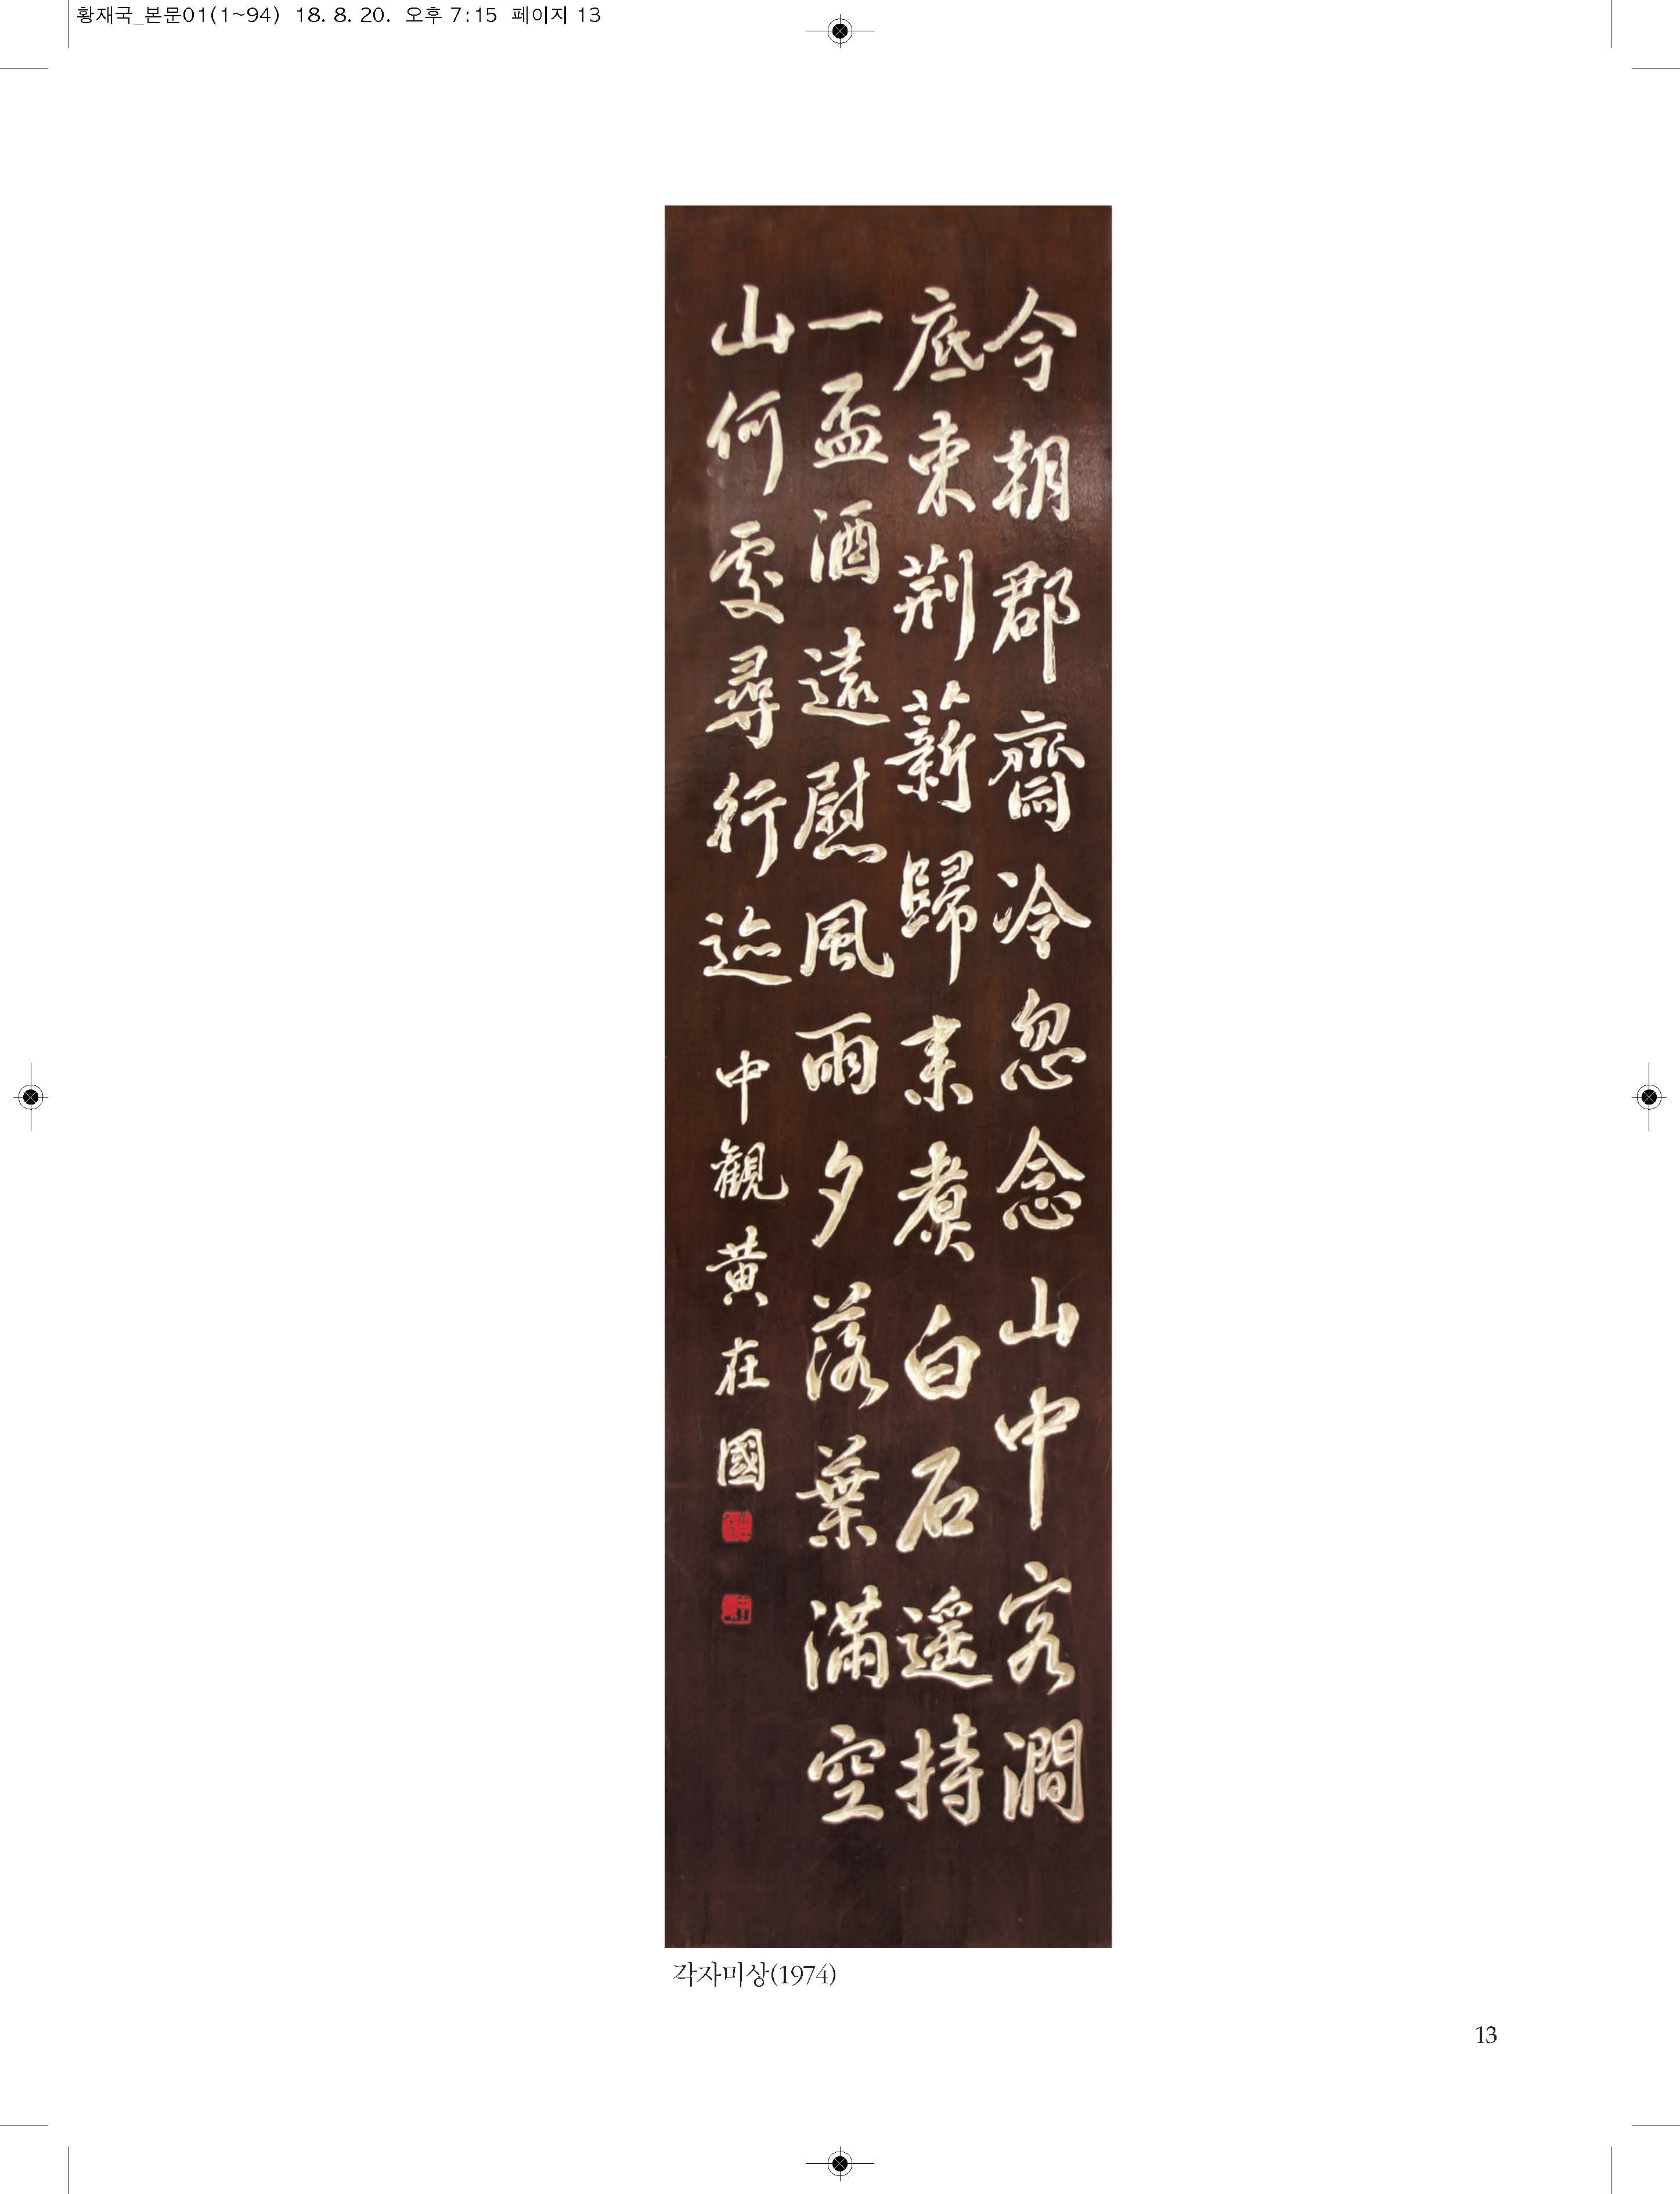 황재국_본문01(1~94) 18. 8. 20. 오후 7:15 페이지 13
今朝郡齋冷忽念山中客澗
底束荊薪歸來煮白石遥持
一盃酒遠慰風雨夕落葉滿空
山何處尋行迹 中觀黃在國
각자미상(1974)
13